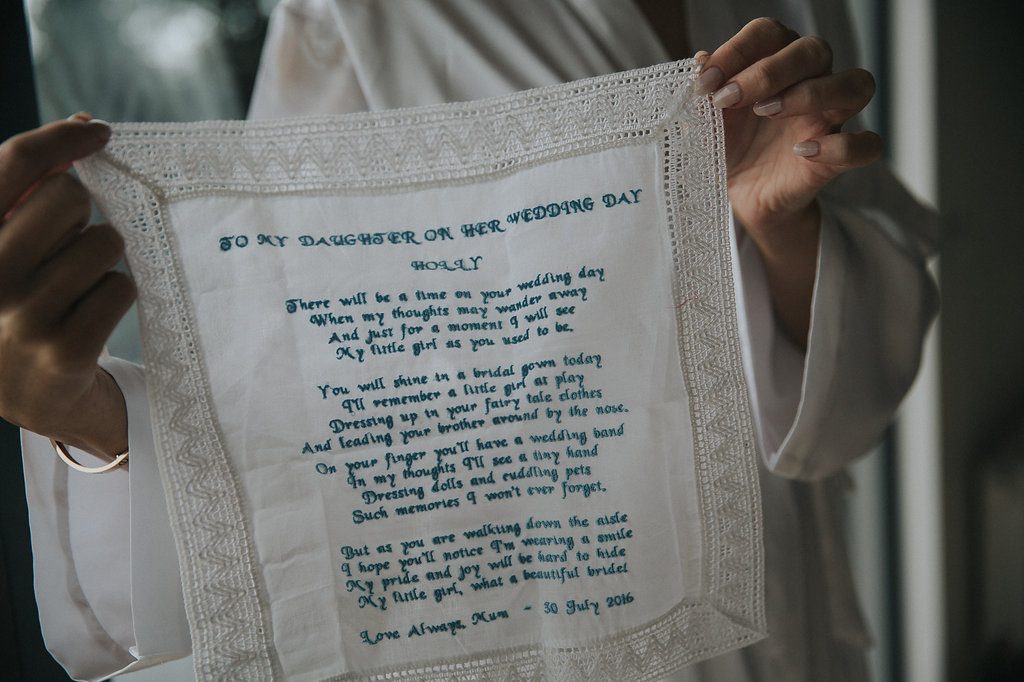 TO MY DAUGHTER ON HER WEDDING DAY
HOLLY
There will be a time on your wedding day
When my thoughts may wander away
And just for a moment I will see
My little girl as you used to be.
You will shine in a bridal gown today
I'll remember a little girl at play
Dressing up in your fairy tale clothes
And leading your brother around by the nose.
On your finger you'll have a wedding band
In my thoughts I'll see a tiny hand
Dressing dolls and cuddling pets
Such memories I won't ever forget.
But as you are walking down the aisle
I hope you'll notice I'm wearing a smile
My pride and joy will be hard to hide
My little girl, what a beautiful bride!
Love Always, Mum - 30 July 2016